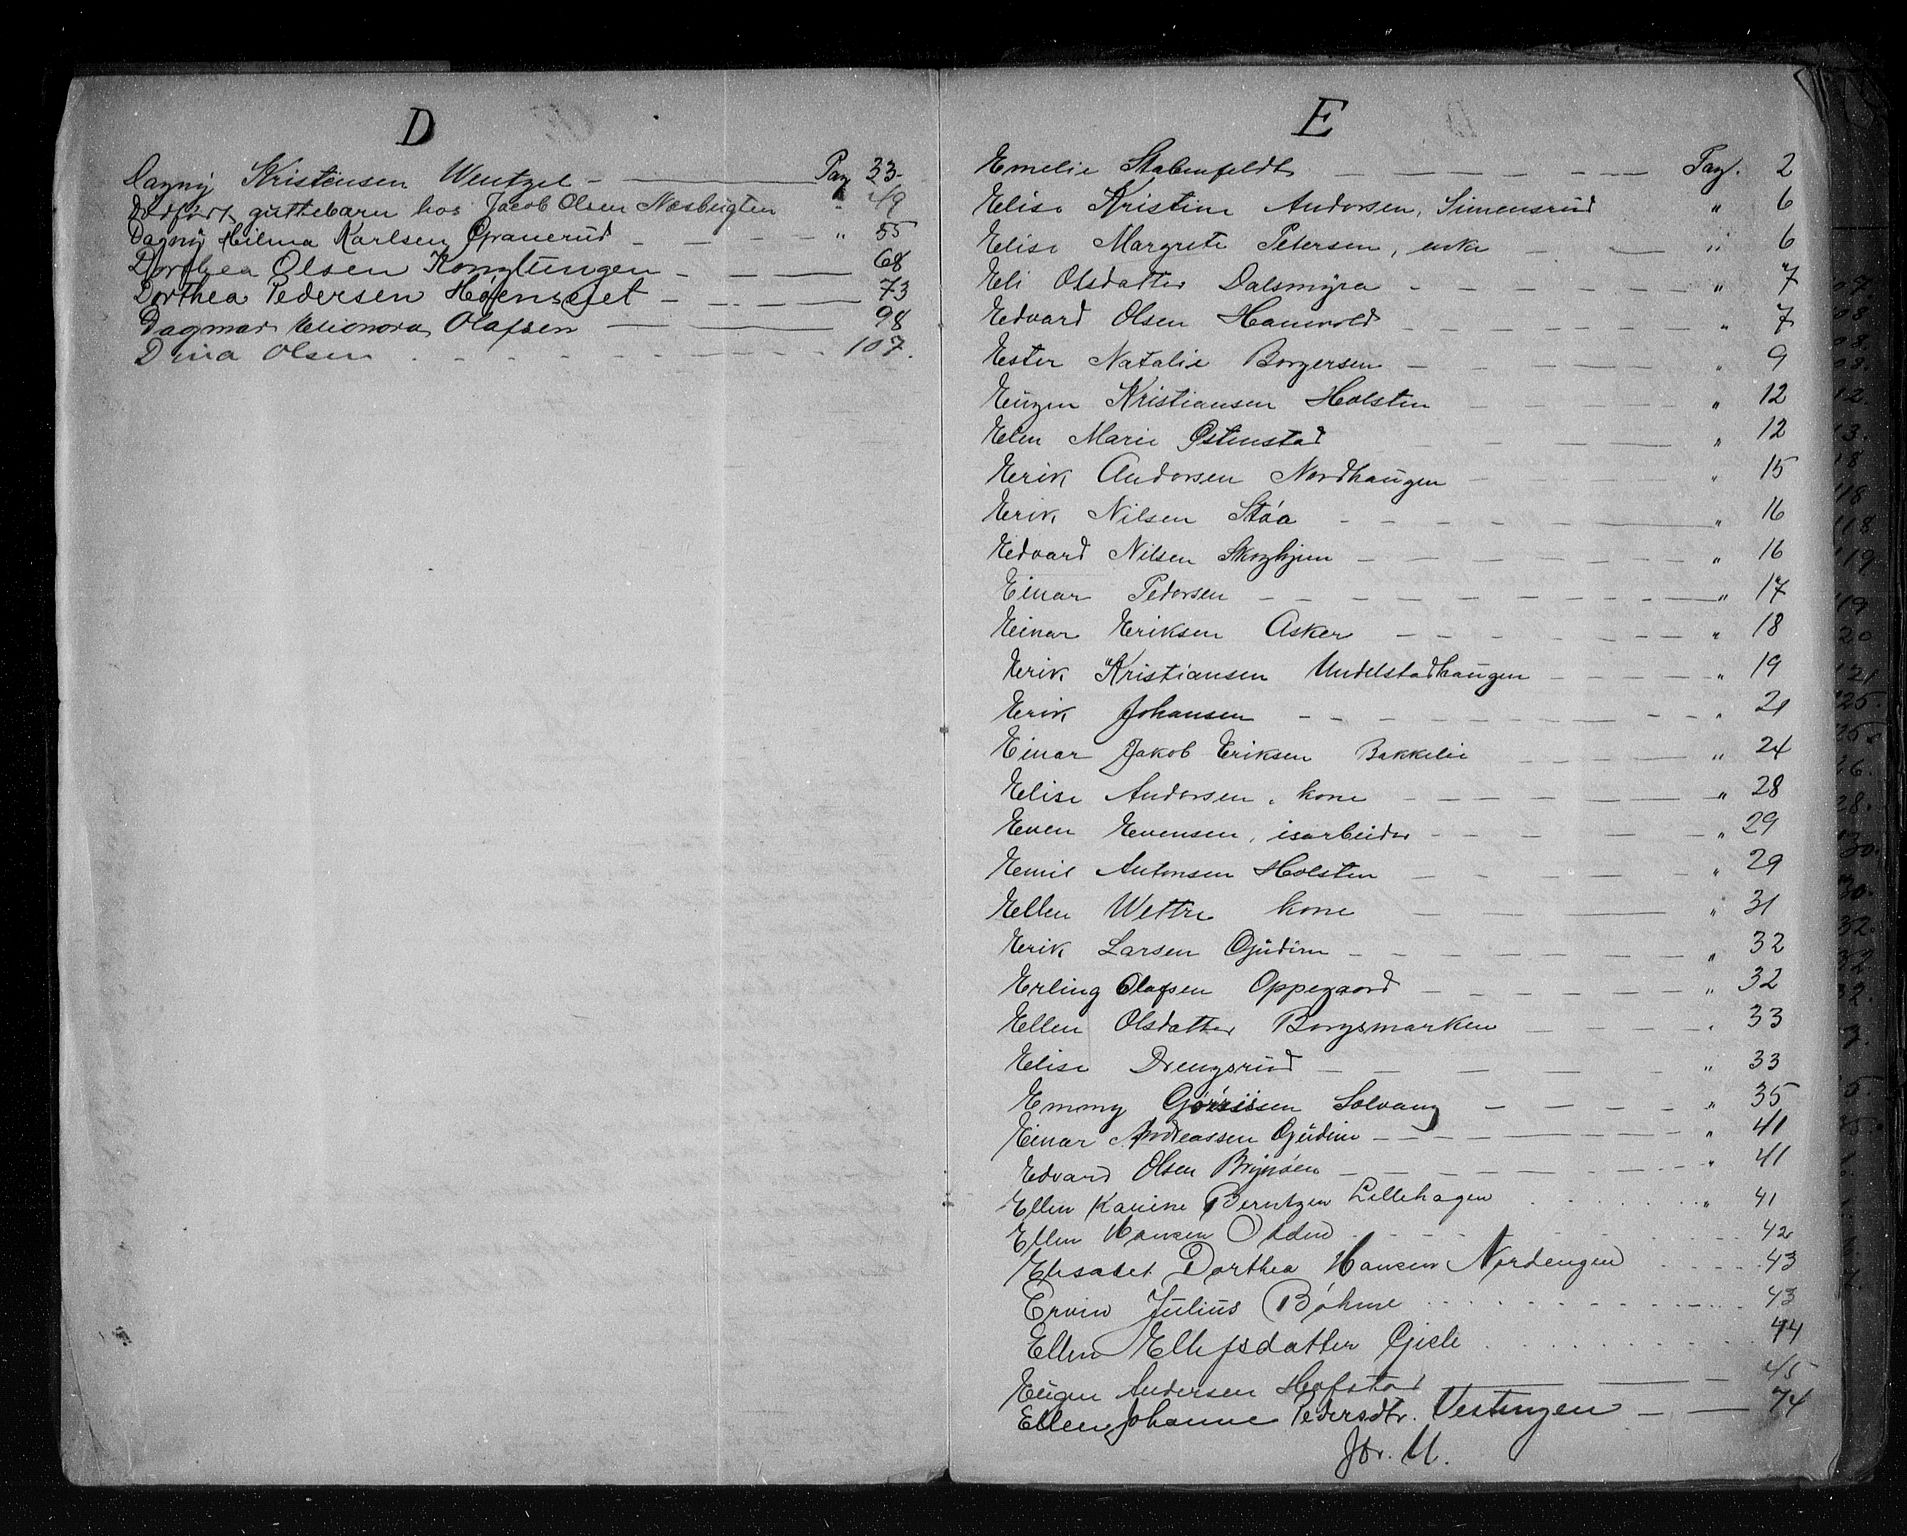 D
Dagny Kristensen Wentzel - Pag 33.
Dødført guttebarn hos Jacob Olsen Næsbugten " 49
Dagny Hilma Karlsen Granerud " 55
Dorthea Olsen Konglungen 68
Dorthea Pedersen 73
Dagmar Elionora Olafsen 98
Dina Olsen 107.
E
Emelie Stabenfeldt Pag. 2
Elise Kristine Andersen, Simensrud " 6
Elise Margrete Petersen, enke " 6
Eli Olsdatter Dalsmyra " 7
Edvard Olsen Hanevold " 7
Ester Natalie Borgersen " 9
Eugen Kristiansen Holsten " 12
Elen Marie Østenstad " 12
Erik Andersen Nordhaugen " 15
Erik Nilsen Støa " 16
Edvard Nilsen " 16
Einar Pedersen " 17
Einar Eriksen Asker " 18
Erik Kristiansen Undelstadhaugen " 19
Erik Johansen " 21
Einar Jakob Eriksen Bakkelie " 24
Elise Andersen, kone " 28
Even Evensen, isarbeider " 29
Emil Antonsen Holsten " 29
Ellen Wettre kone " 31
Erik Larsen Gjudim " 32
Erling Olafsen Oppegaard " 32
Ellen Olsdatter Borgsmarken " 33
Elise Drengsrud " 33
Emmy Solvang " 35
Einar Andreassen Gjudim " 41
Edvard Olsen Brynøen " 41
Ellen Kaurine Berntzen Lillehagen " 41
Ellen Hansen Odden 42
Elisabet Dorthea Hansen Nordengen 43
Ervin Julius Bøhme 43
Ellen Ellefsdatter Gisle 44
Eugen Andersen Hofstad 45
Ellen Johanne Pedersdtr. Vestengen 74